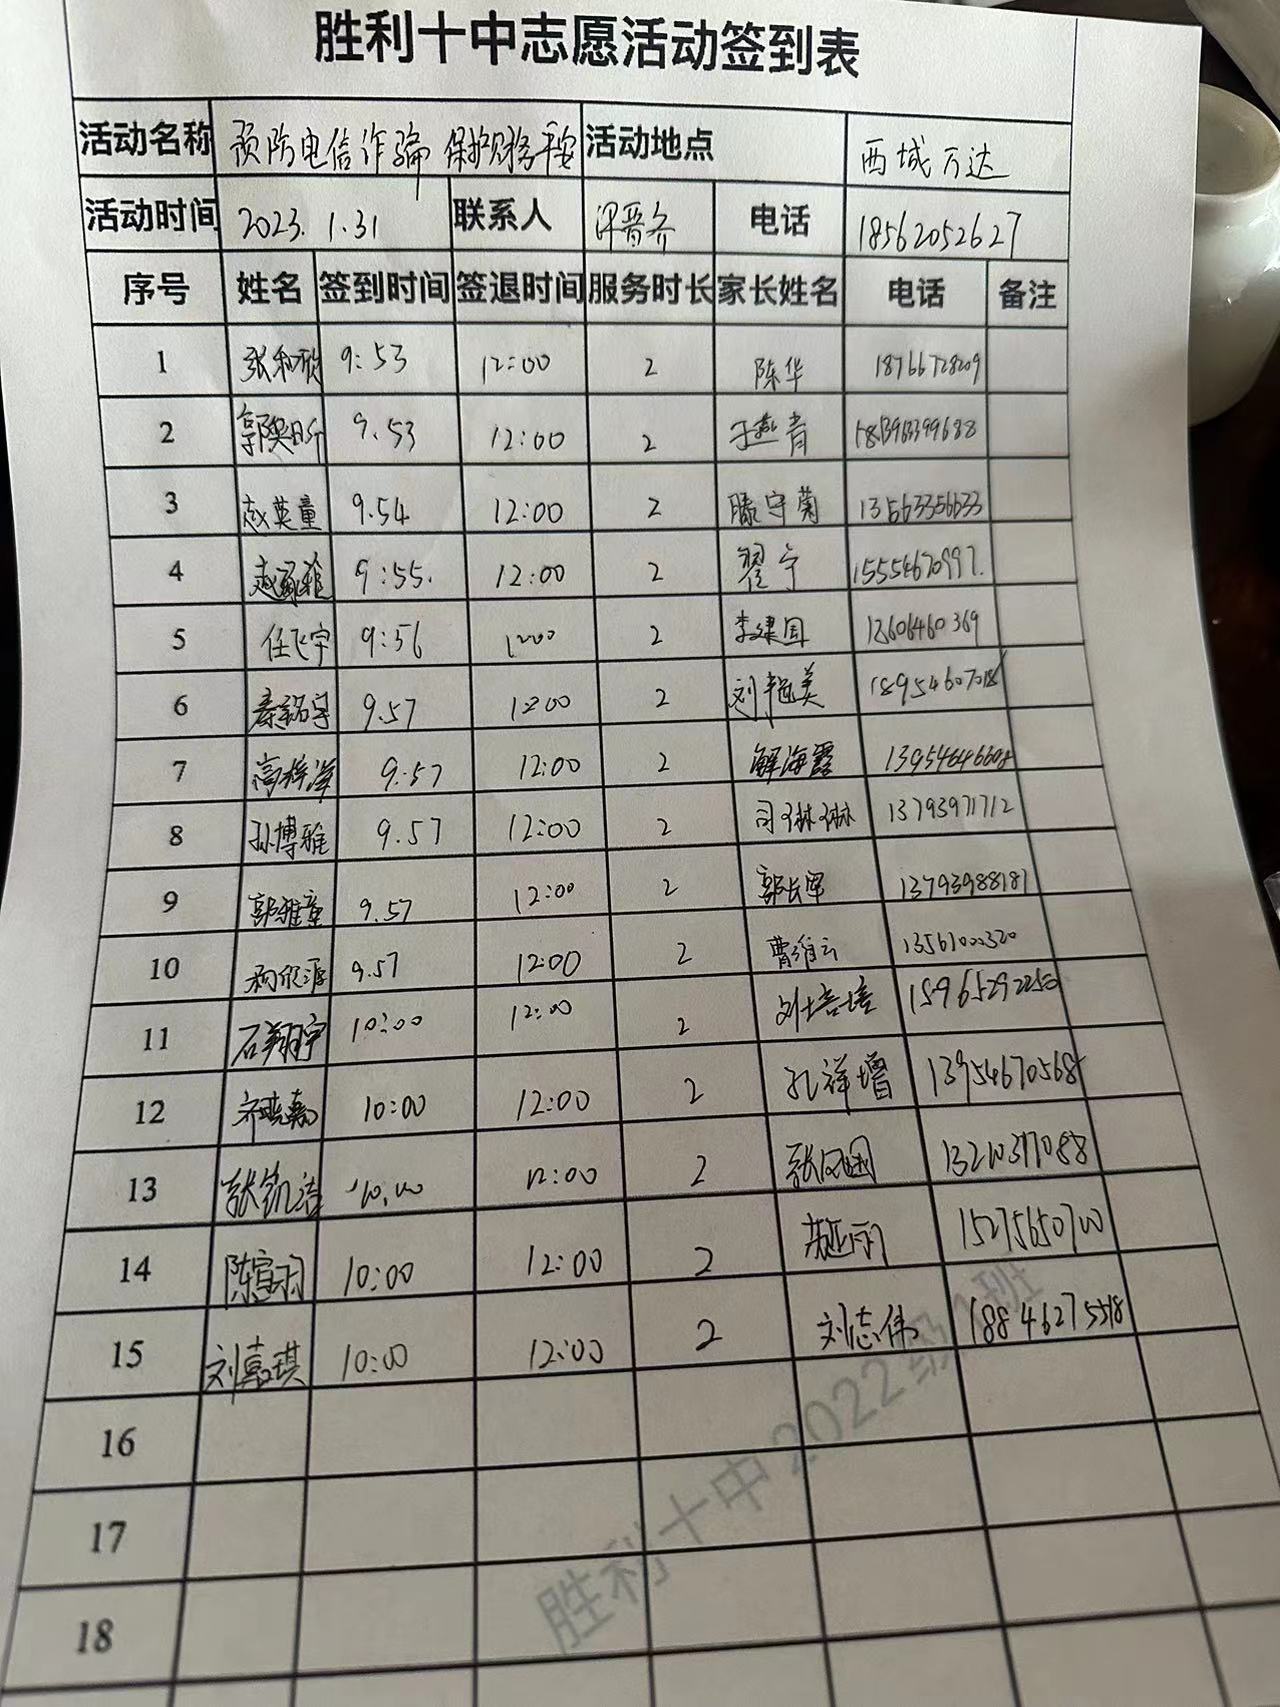 胜利十中志愿活动签到表
活动名称 预防电信诈骗 保护财务平安 活动地点 西城万达
活动时间 2023.1.31 联系人 电话 18562052627
序号 姓名 签到时间 签退时间 服务时长 家长姓名 电话 备注
1 张和欣 9:53 12:00 2 陈华 18766728209
2 9.53 12:00 2 于燕青
3 赵英童 9.54 12:00 2 滕守菊 13563356633
4 9:55. 12:00 2 翟宁 15554670997.
5 任飞宇 9:56 12:00 2 李建国 13606460369
6 秦铭宇 9.57 12:00 2 刘艳美 18954607018
7 高梓洋 9:57 12:00 2 解海霞 13954646608
8 孙博雅 9.57 12:00 2 司琳琳 13793971712
9 郭雅童 9.57 12:00 2 郭长军 13793988181
10 9.57 12:00 2 曹维云 13561000320
11 石翔宇 10:00 12:00 2 刘培培 15965292250
12 齐晓嘉 10:00 12:00 2 孔祥增 13954670568
13 10:00 12:00 2 13210317088
14 陈宣羽 10:00 12:00 2 15275650700
15 刘嘉琪 10:00 12:00 2 刘志伟 18846275518
16
17
18
胜利十中2022级1班